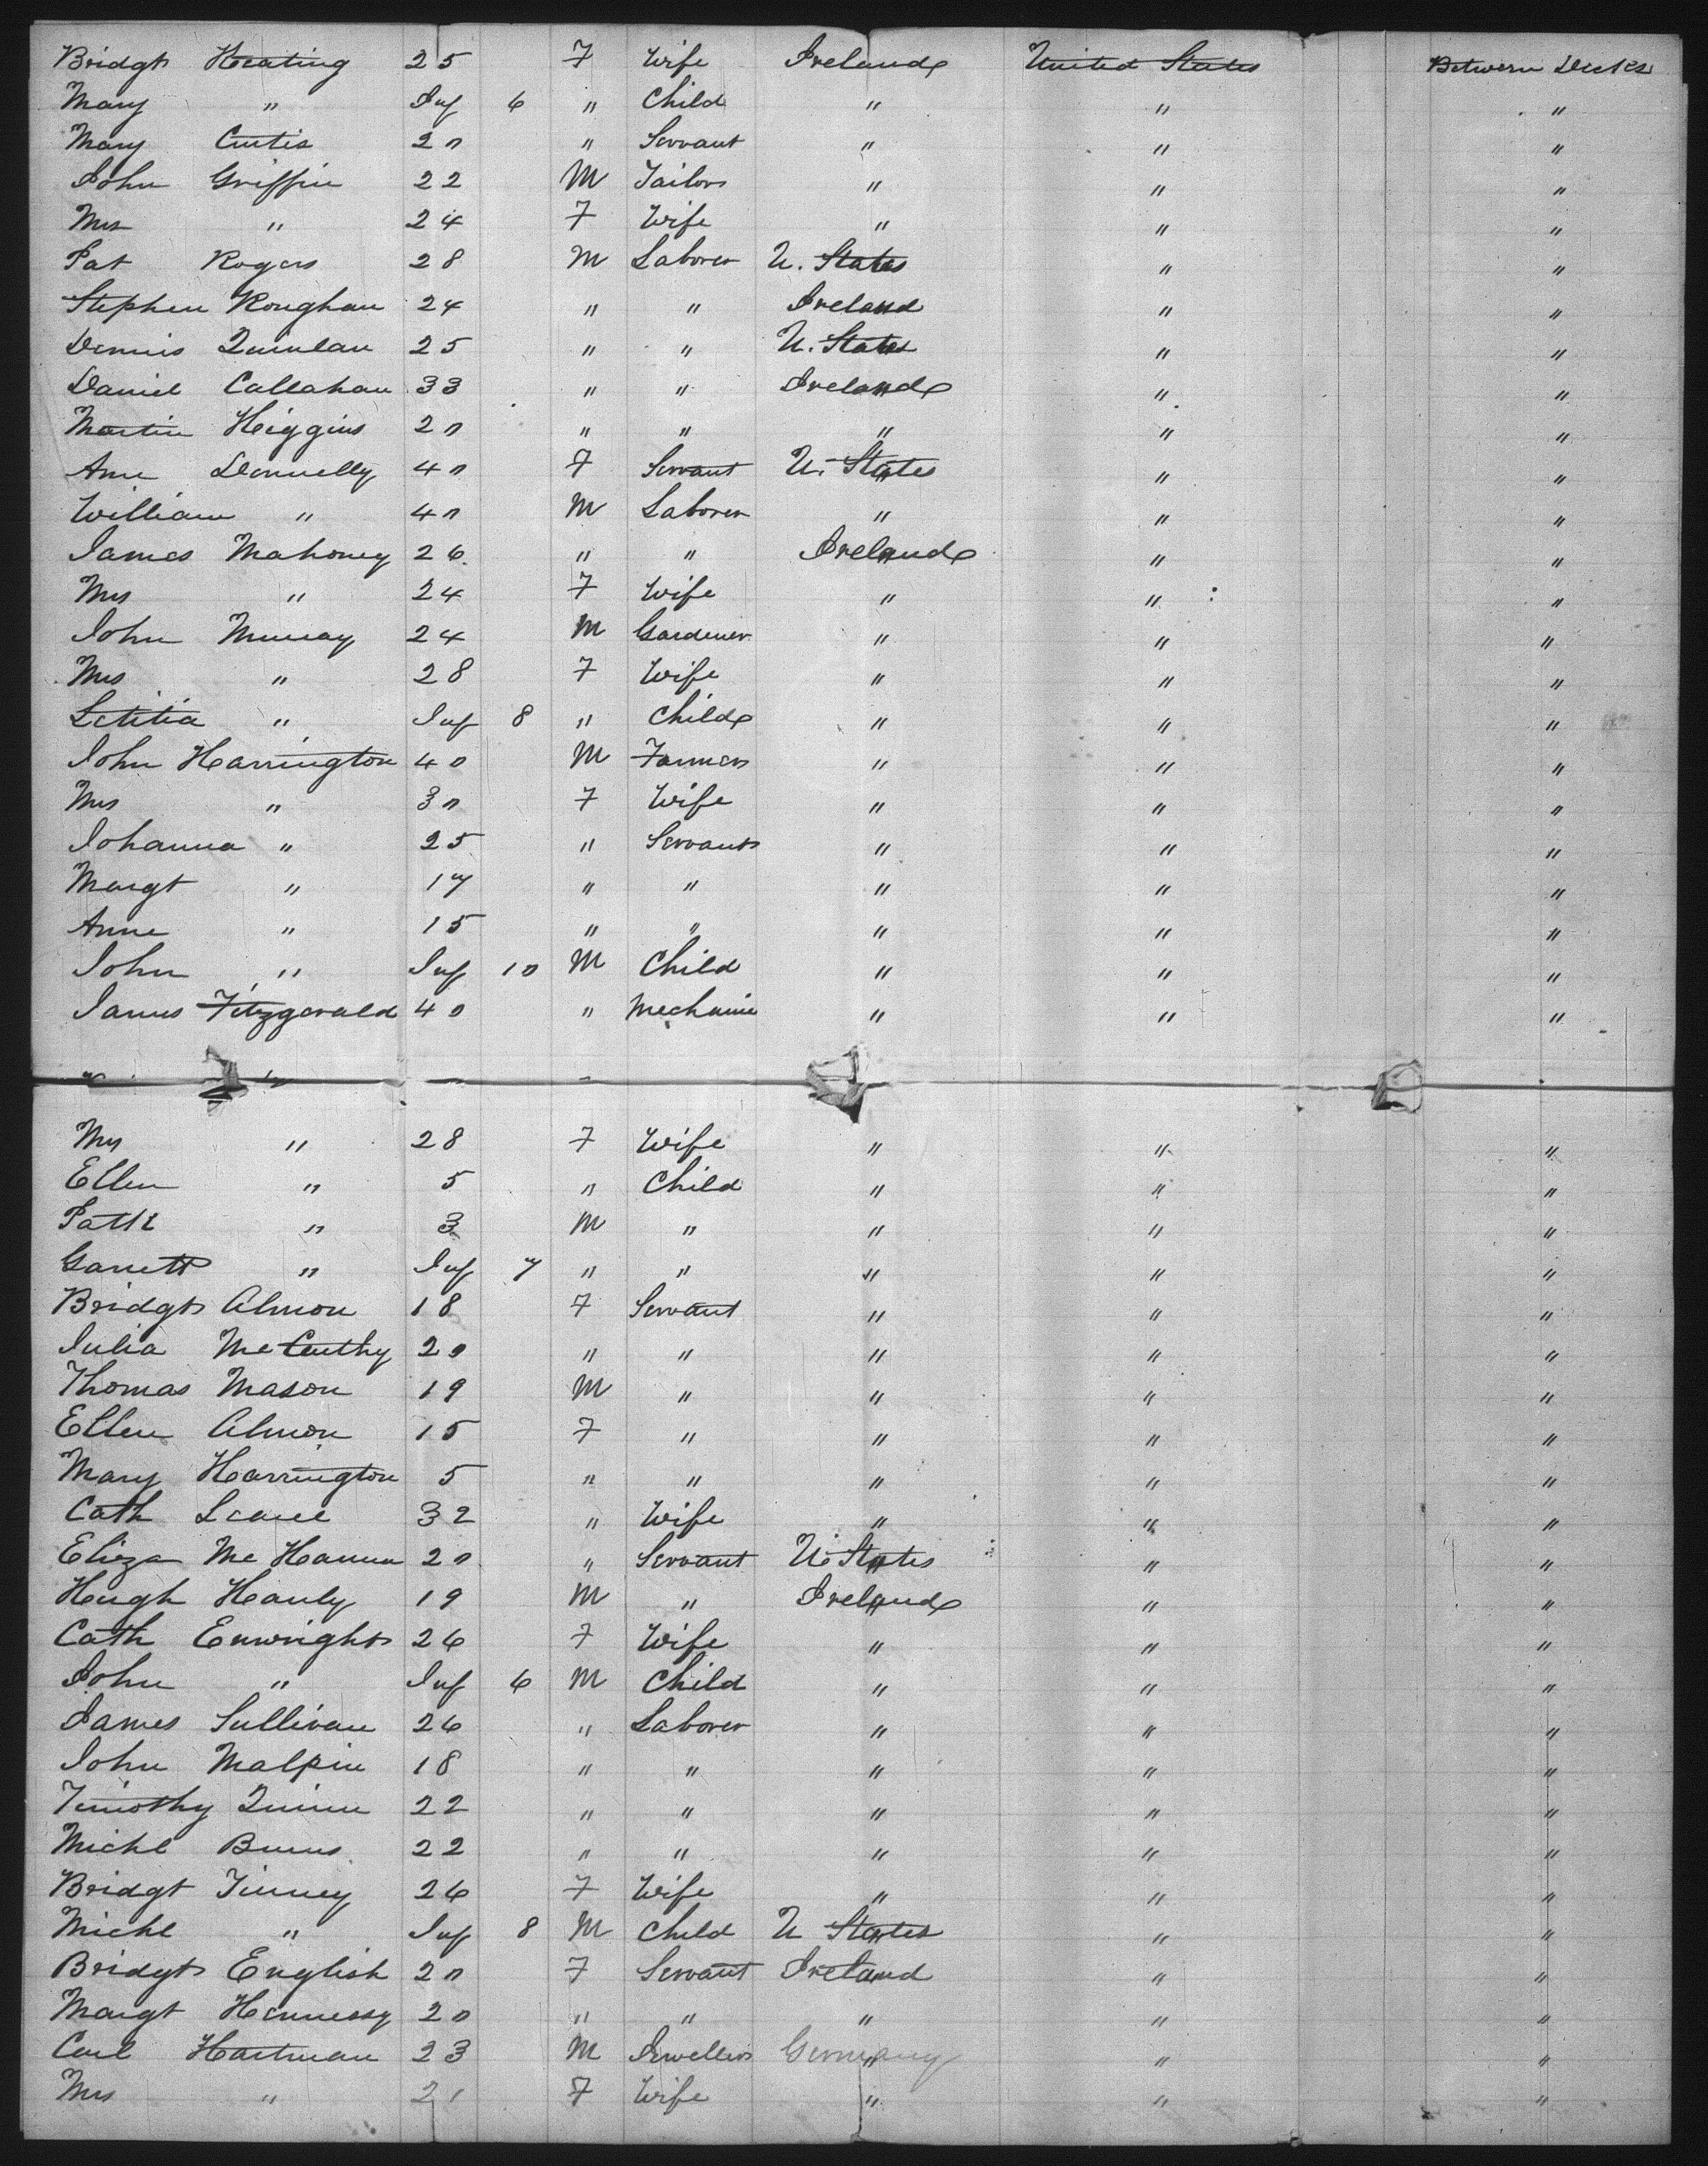 Bridgt Keating 25 F Wife Ireland United States Between Decks
Mary " Inf 6 " Child " " "
Mary Curtis 20 " Servant " " "
John Griffin 22 M Tailor " " "
Mrs " 24 F Wife " " "
Pat Rogers 28 M Laborer U. States " "
Stephen Roughan 24 " " Ireland " "
Dennis Quinlan 25 " " U. States " "
Daniel Callahan 33 " " Ireland " "
Martin Higgins 20 " " " " "
Ann Donnelly 40 F Servant U. States " "
William " 40 M Laborer " " "
James Mahoney 26 " " Ireland " "
Mrs " 24 F Wife " " "
John Murray 24 M Gardener " " "
Mrs " 28 F Wife " " "
Letitia " Inf 8 " Child " " "
John Harrington 40 M Farmer " " "
Mrs " 30 F Wife " " "
Johanna " 25 " Servant " " "
Margt " 17 " " " " "
Anne " 15 " " " " "
John " Inf 10 M Child " " "
James Fitzgerald 40 " Mechanic " " "
Mrs " 28 F Wife " " "
Ellen " 5 " Child " " "
Patk " 3 M " " " "
Garrett " Inf 7 " " " " "
Bridgt Almon 18 F Servant " " "
Julia McCarthy 20 " " " " "
Thomas Mason 19 M " " " "
Ellen Almon 15 F " " " "
Mary Harrington 5 " " " " "
Cath Leane 32 " Wife " " "
Eliza McHannu 20 " Servant U States " "
Hugh Hanly 19 M " Ireland " "
Cath Enwright 26 F Wife " " "
John " Inf 6 M Child " " "
James Sullivan 26 " Laborer " " "
John Malpin 18 " " " " "
Timothy Quinn 22 " " " " "
Michl Burns 22 " " " " "
Bridgt Tinney 26 F Wife " " "
Michl " Inf 8 M Child U States " "
Bridgt English 20 F Servant Ireland " "
Margt Hennessy 20 " " " " "
Carl Hartman 23 M Jeweller Germany " "
Mrs " 21 F Wife " " "